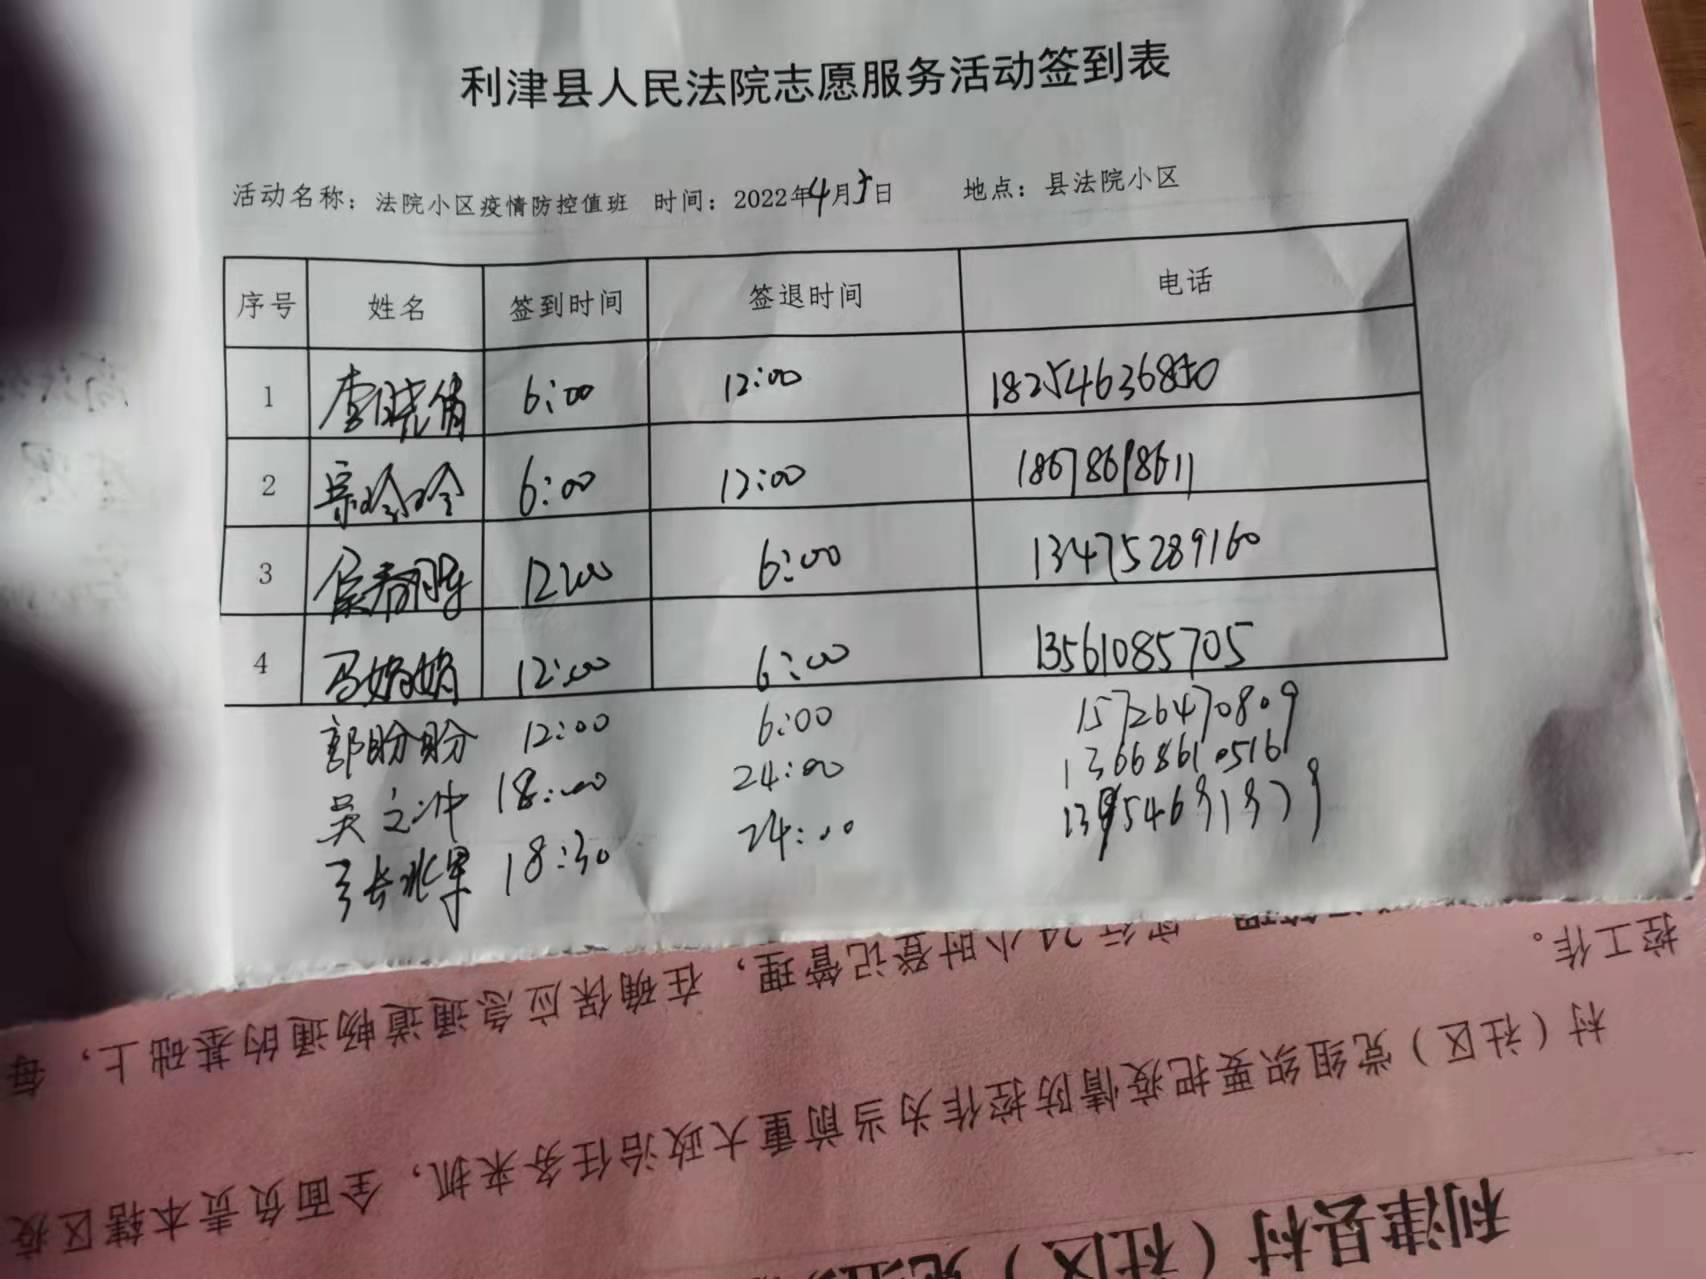 利津县人民法院志愿服务活动签到表
活动名称：法院小区疫情防控值班 时间：2022年4月5日 地点：县法院小区
序号 姓名 签到时间 签退时间 电话
1 李晓倩 6:00 12:00 18254636850
2 宗玲玲 6:00 12:00 18678698611
3 12:00 6:00 13475289160
4 马娟娟 12:00 6:00 13561085705
郭盼盼 12:00 6:00 15726470809
吴立冲 18:00 24:00 13668610516
18:30 24:00
控工作。
24小时登记管理，在确保应急通道畅通的基础上，每
村（社区）党组织要把疫情防控作为当前重大政治任务来抓，全面负责本辖区疫
利津县村（社区）党组